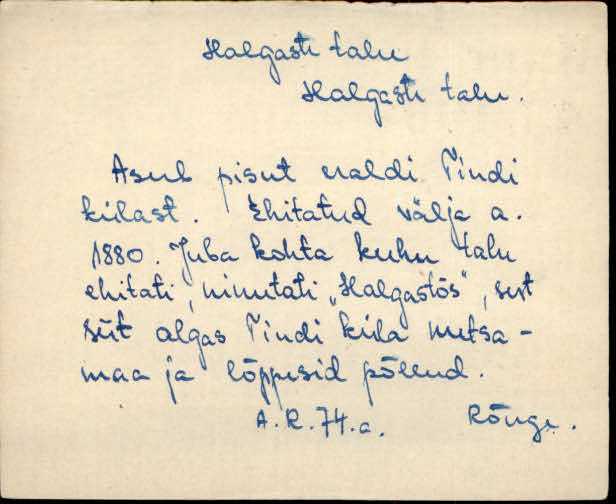 Halgasti talu
Halgasti talu.
Asub pisut eraldi Tindi
külast. Ehitatud välja a.
1880. Juba kohta kuhu talu
ehitati, nimetati „Halgastõs", sest
siit algas Tindi küla metsa-
maa ja lõppesid põllud.
A.R. 74.a. Rõuge.